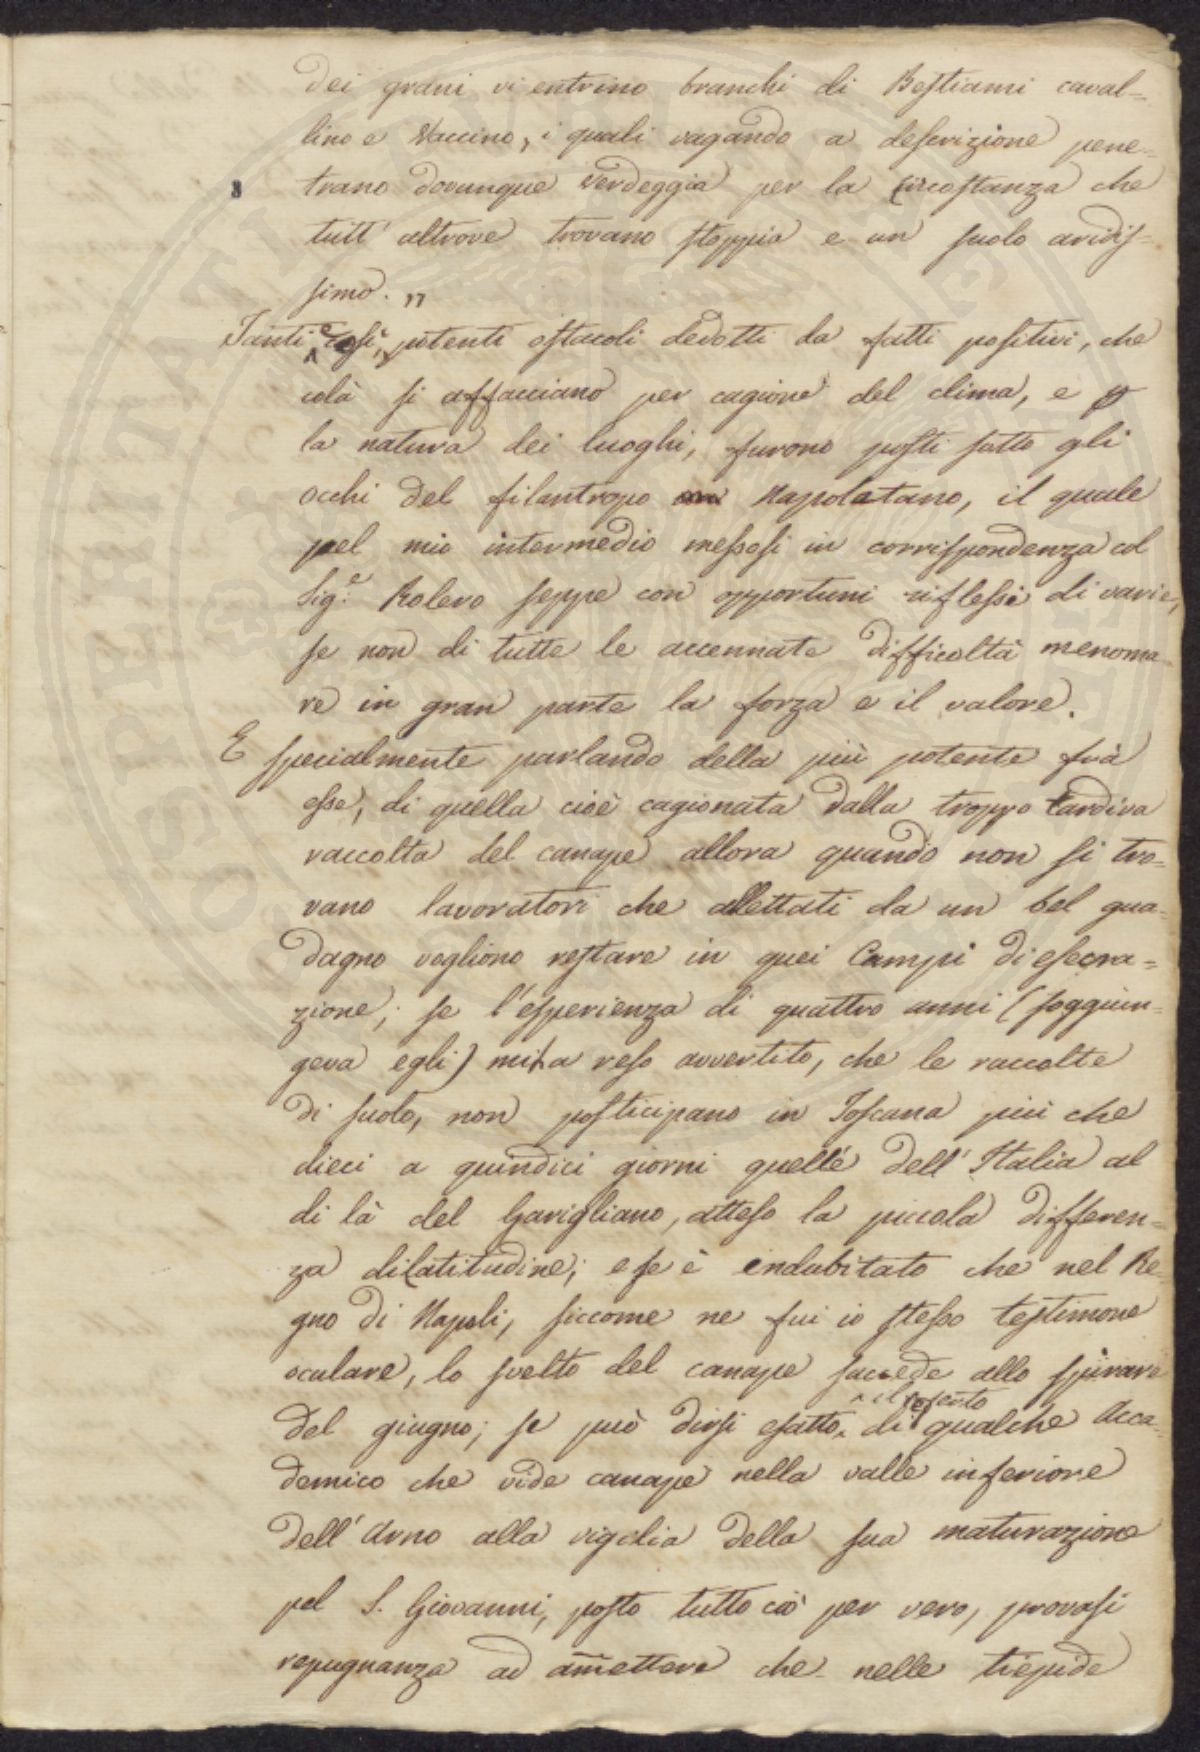 dei grani vi entrino branchi di Bestiami caval=
lino e Vaccino, i quali vagando a descrizione pene=
trano dovunque verdeggia per la circostanza che
tutt' altrove trovano stoppia e un suolo aridis=
simo. "
Tanti e così, potenti ostacoli dedotti da fatti positivi, che
colà si affacciano per cagione del clima, e p
la natura dei luoghi, furono posti sotto gli
occhi del filantropo Napoletano, il quale
pel mio intermedio messosi in corrispondenza col
Sig.e Rolero seppe con opportuni riflessi di varie,
se non di tutte le accennate difficoltà menoma=
re in gran parte la forza e il valore.
E specialmente parlando della più potente frà
esse, di quella cioè cagionata dalla troppo tardiva
raccolta del canape allora quando non si tro=
vano lavoratori che allettati da un bel gua=
dagno vogliono restare in quei Campi di esecra=
zione; se l'esperienza di quattro anni (soggiun=
geva egli) mi ha reso avvertito, che le raccolte
di suolo, non posticipano in Toscana più che
dieci a quindici giorni quelle dell' Italia al
di là del Garigliano, atteso la piccola differen=
za di latitudine; e se è indubitato che nel Re=
gno di Napoli, siccome ne fui io stesso testimone
oculare, lo svelto del canape succede allo spirare
del giugno; se può dirsi esatto il referto di qualche Acca=
demico che vide canape nella valle inferiore
dell' Arno alla vigilia della sua maturazione
pel S. Giovanni, posto tutto ciò per vero, provasi
repugnanza ad amettere che nelle tiepide